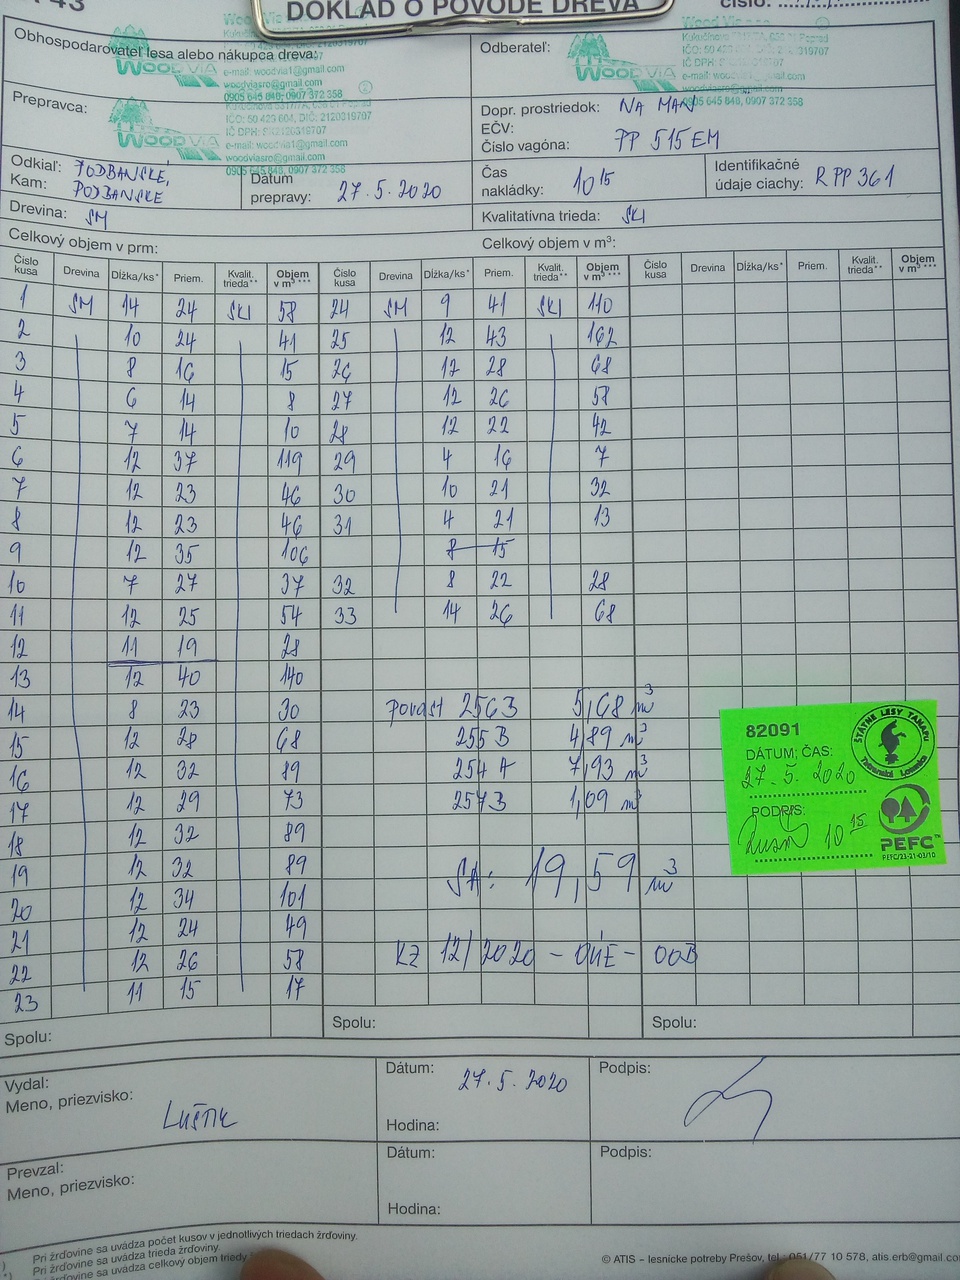 DOKLAD O PÔVODE DREVA
Obhospodarovateľ lesa alebo nákupca dreva:
WOOD VIA
e-mail: woodvia1@gmail.com
woodviasro@gmail.com
0905 645 848, 0907 372 358
Odberateľ:
WOOD VIA
e-mail: woodvia1@gmail.com
woodviasro@gmail.com
0905 645 848, 0907 372 358
Prepravca:
WOOD VIA
IČO: 50 429 604, DIČ: 2120319707
IČ DPH: SK2120319707
e-mail: woodvia1@gmail.com
woodviasro@gmail.com
0905 645 848, 0907 372 358
Dopr. prostriedok: NA MAN
EČV:
Číslo vagóna: PP 515 EM
Odkiaľ: PODBANSKÉ,
Kam: PODBANSKÉ
Dátum
prepravy: 27.5.2020
Čas
nakládky: 10 15
Identifikačné
údaje ciachy: R PP 361
Drevina: SM
Kvalitatívna trieda: SKI
Celkový objem v prm:
Celkový objem v m³:
Číslo kusa Drevina Dĺžka/ks* Priem. Kvalit. trieda** Objem v m³*** Číslo kusa Drevina Dĺžka/ks* Priem. Kvalit. trieda** Objem v m³*** Číslo kusa Drevina Dĺžka/ks* Priem. Kvalit. trieda** Objem v m³***
1 SM 14 24 SKI 58 24 SM 9 41 SKI 110
2 10 24 41 25 12 43 162
3 8 16 15 26 12 28 68
4 6 14 8 27 12 26 58
5 7 14 10 28 12 22 42
6 12 37 119 29 4 16 7
7 12 23 46 30 10 21 32
8 12 23 46 31 4 21 13
9 12 35 106 8 15
10 7 27 37 32 8 22 28
11 12 25 54 33 14 26 68
12 11 19 28
13 12 40 140
14 8 23 30 porast 256B 5,68 m³
15 12 28 68 255 B 4,89 m³
16 12 32 89 254 A 7,93 m³
17 12 29 73 257B 1,09 m³
18 12 32 89
19 12 32 89 SA: 19,59 m³
20 12 34 101
21 12 24 49
22 12 26 58 KZ 12/2020 - OÚE - OOB
23 11 15 17
Spolu: Spolu: Spolu:
82091
DÁTUM, ČAS:
27.5.2020
PODPIS:
10 15
ŠTÁTNE LESY TANAPU
Tatranská Lomnica
PEFC™
PEFC/23-21-03/10
Vydal:
Meno, priezvisko:
Dátum: 27.5.2020
Podpis:
Hodina:
Prevzal:
Meno, priezvisko:
Dátum:
Podpis:
Hodina:
Pri žrďovine sa uvádza počet kusov v jednotlivých triedach žrďoviny.
Pri žrďovine sa uvádza trieda žrďoviny.
Pri žrďovine sa uvádza celkový objem triedy
© ATIS – lesnícke potreby Prešov, tel.: 051/77 10 578, atis.erb@gmail.co